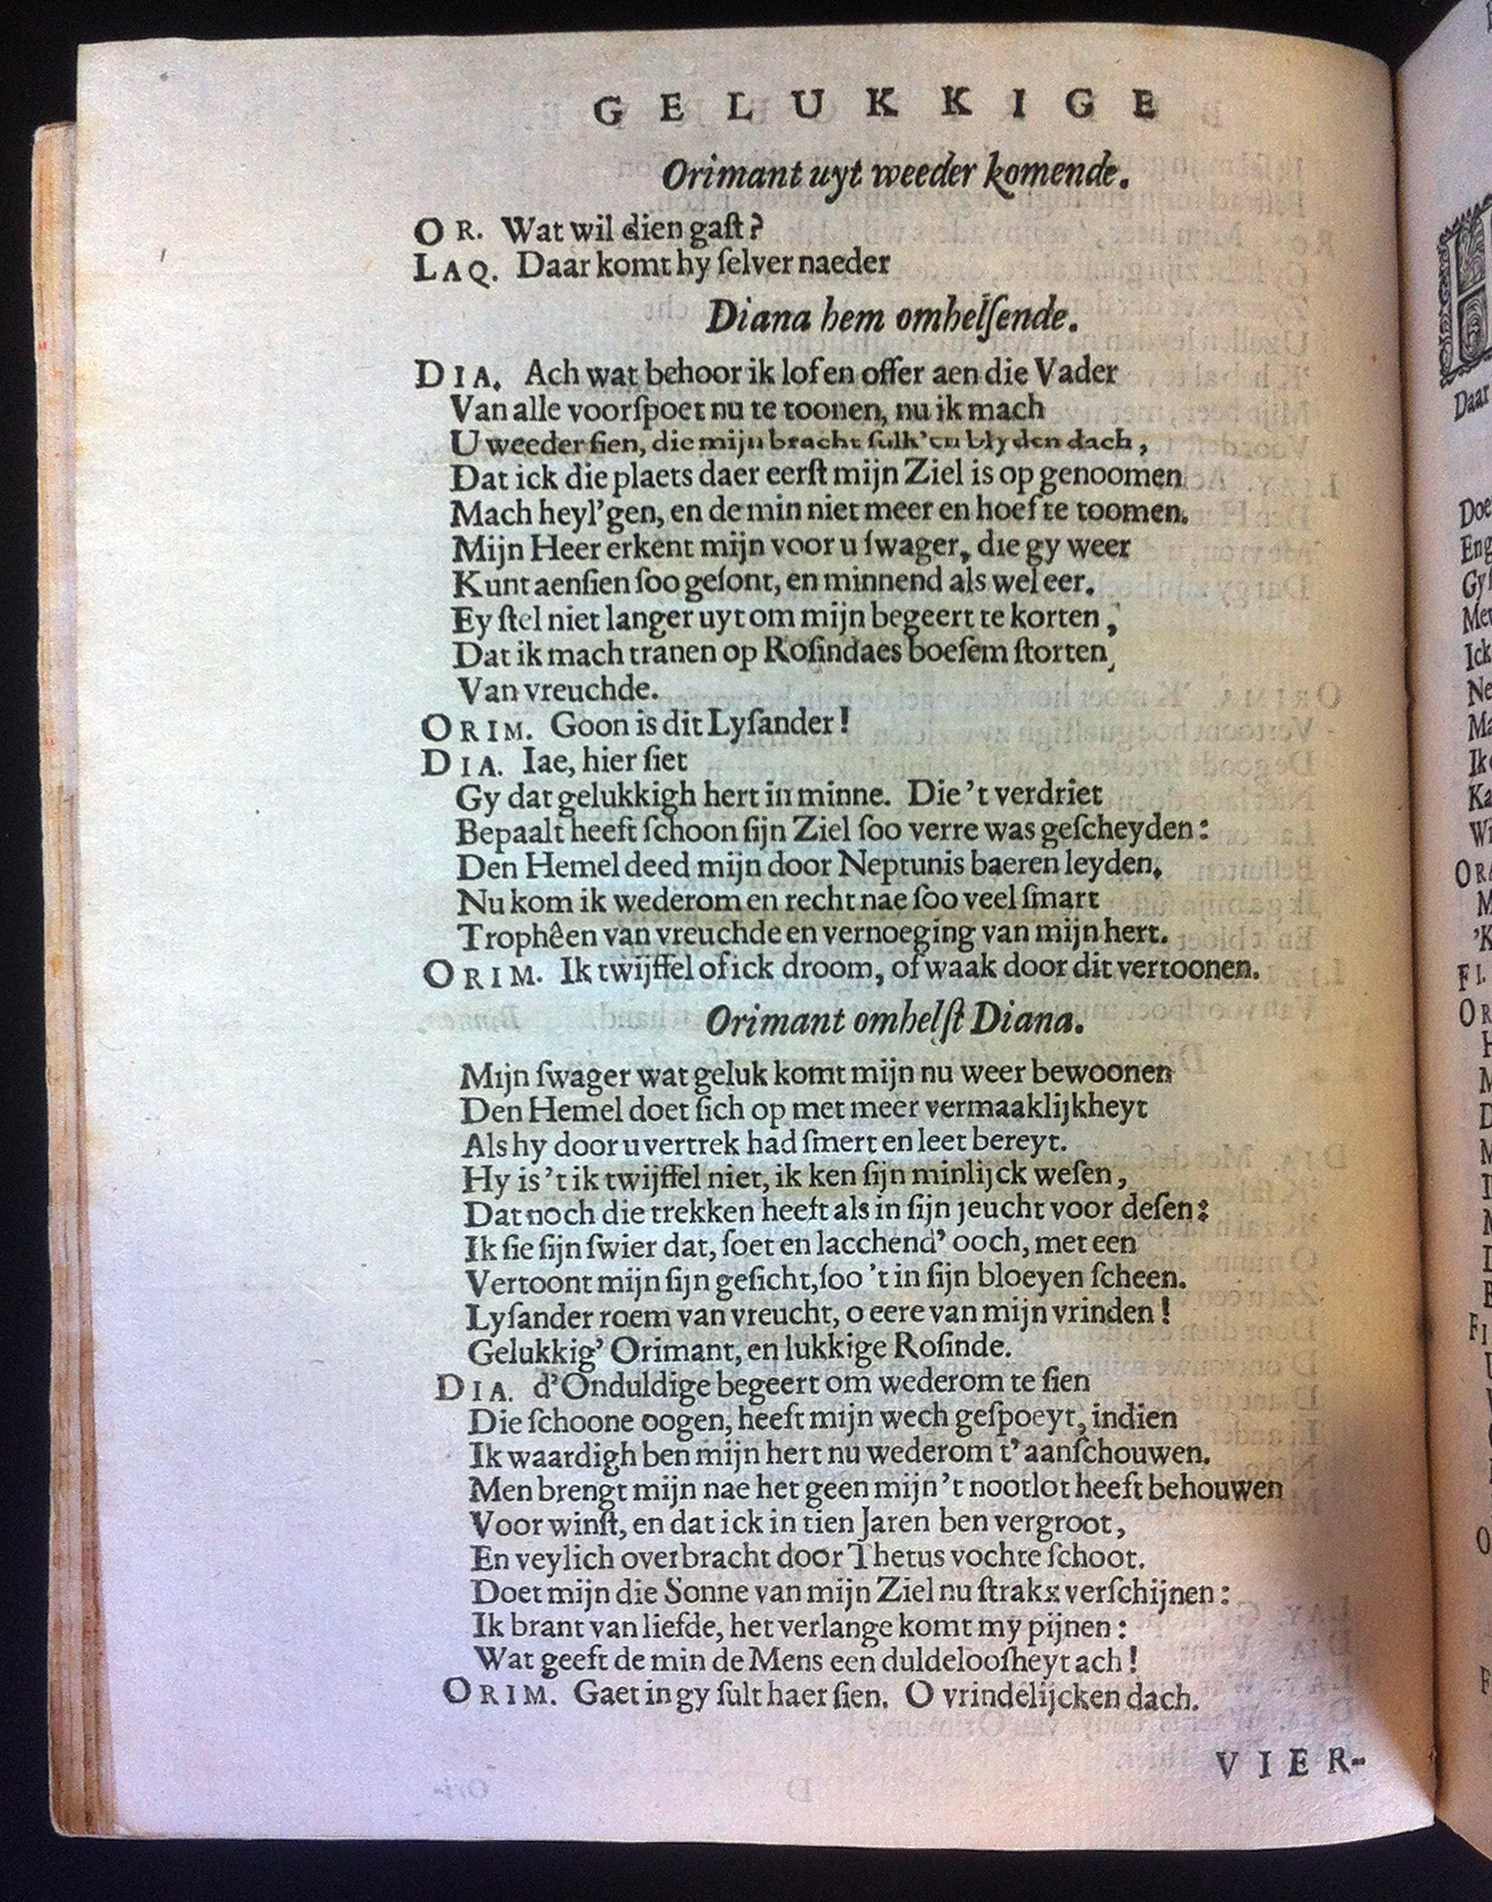 GELUKKIGE
Orimant uyt weeder komende.
OR. Wat wil dien gaſt?
LAQ. Daar komt hy ſelver naeder
Diana hem omhelſende.
DIA. Ach wat behoor ik lof en offer aen die Vader
Van alle voorſpoet nu te toonen, nu ik mach
U weeder ſien, die mijn bracht ſulk'en blyden dach,
Dat ick die plaets daer eerſt mijn Ziel is op genoomen
Mach heyl'gen, en de min niet meer en hoef te toomen.
Mijn Heer erkent mijn voor u ſwager, die gy weer
Kunt aenſien ſoo geſont, en minnend als wel eer.
Ey ſtel niet langer uyt om mijn begeert te korten,
Dat ik mach tranen op Roſindaes boeſem ſtorten,
Van vreuchde.
ORIM. Goon is dit Lyſander!
DIA. Iae, hier ſiet
Gy dat gelukkigh hert in minne. Die 't verdriet
Bepaalt heeft ſchoon ſijn Ziel ſoo verre was geſcheyden:
Den Hemel deed mijn door Neptunis baeren leyden,
Nu kom ik wederom en recht nae ſoo veel ſmart
Trophêen van vreuchde en vernoeging van mijn hert.
ORIM. Ik twijffel of ick droom, of waak door dit vertoonen.
Orimant omhelſt Diana.
Mijn ſwager wat geluk komt mijn nu weer bewoonen
Den Hemel doet ſich op met meer vermaaklijkheyt
Als hy door u vertrek had ſmert en leet bereyt.
Hy is 't ik twijffel niet, ik ken ſijn minlijck weſen,
Dat noch die trekken heeft als in ſijn jeucht voor deſen:
Ik ſie ſijn ſwier dat, ſoet en lacchend' ooch, met een
Vertoont mijn ſijn geſicht, ſoo 't in ſijn bloeyen ſcheen.
Lyſander roem van vreucht, o eere van mijn vrinden!
Gelukkig' Orimant, en lukkige Roſinde.
DIA. d'Onduldige begeert om wederom te ſien
Die ſchoone oogen, heeft mijn wech geſpoeyt, indien
Ik waardigh ben mijn hert nu wederom t' aanſchouwen.
Men brengt mijn nae het geen mijn 't nootlot heeft behouwen
Voor winſt, en dat ick in tien Jaren ben vergroot,
En veylich overbracht door Thetus vochte ſchoot.
Doet mijn die Sonne van mijn Ziel nu ſtrakx verſchijnen:
Ik brant van liefde, het verlange komt my pijnen:
Wat geeft de min de Mens een duldelooſheyt ach!
ORIM. Gaet in gy ſult haer ſien. O vrindelijcken dach.
VIER-
Daar